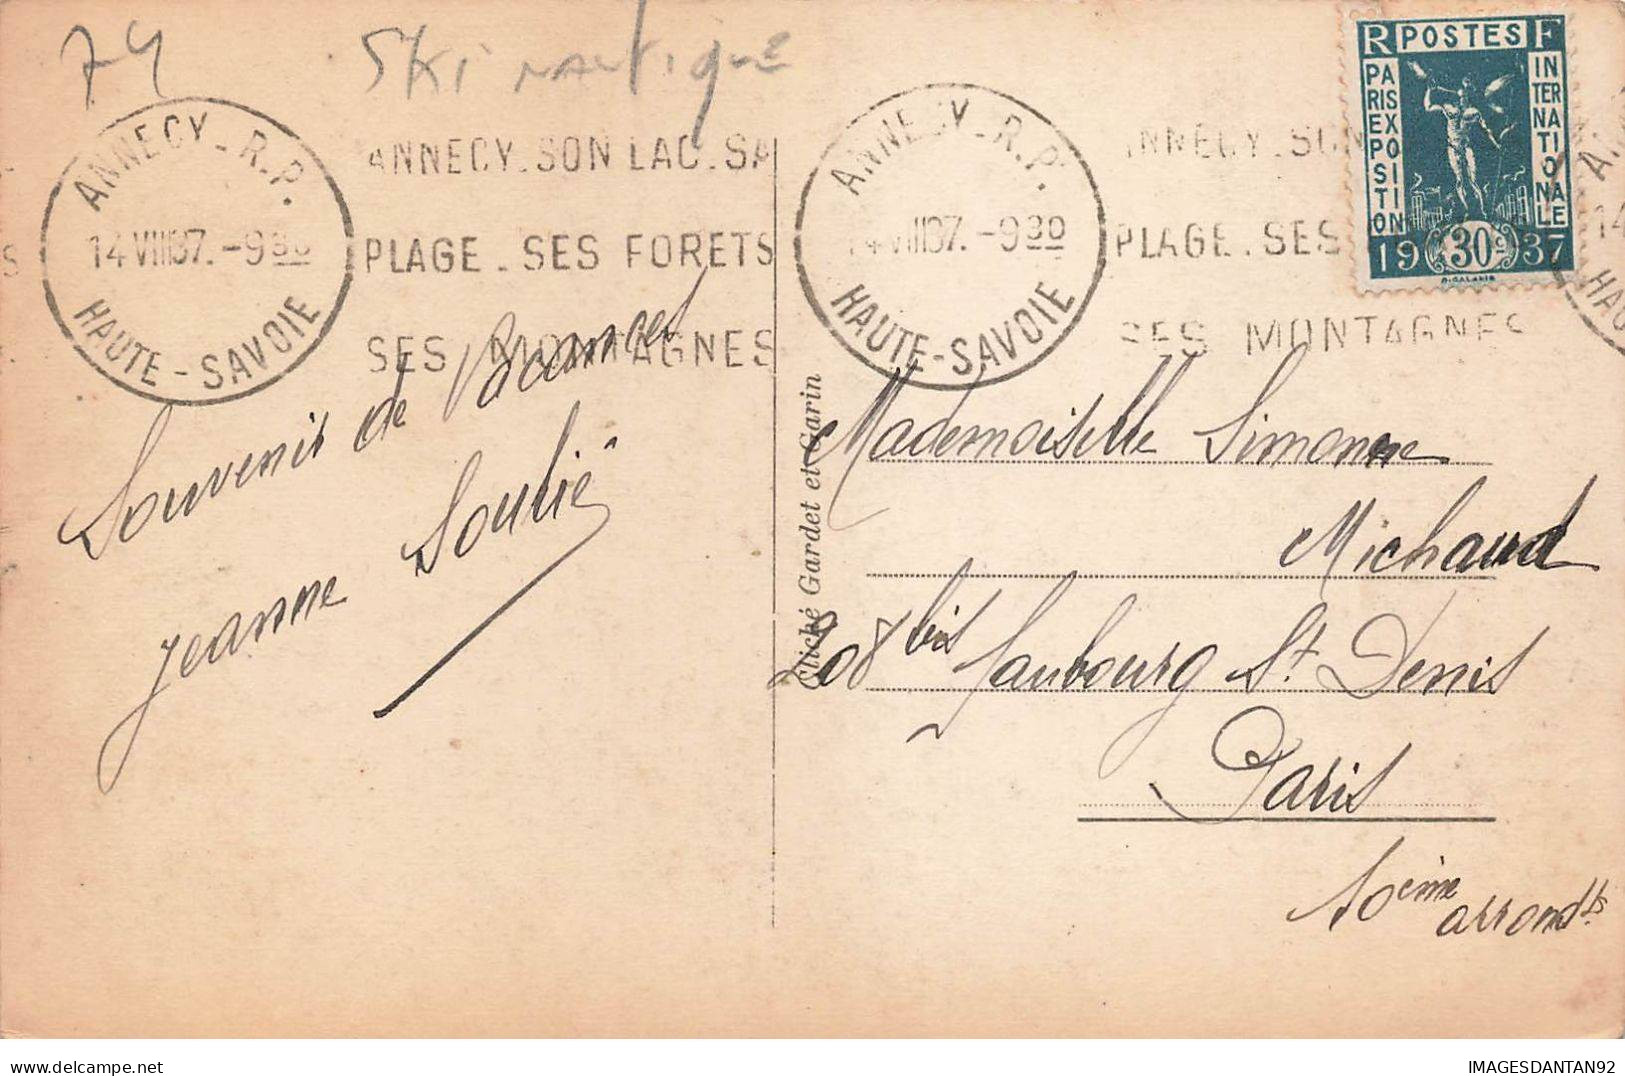 74
Ski nautique
ANNECY - R.P.
14 VIII 37. - 9 30
HAUTE - SAVOIE
ANNECY - SON LAC - SA
PLAGE - SES FORETS
SES MONTAGNES
ANNECY - R.P.
14 VIII 37. - 9 30
HAUTE - SAVOIE
ANNECY - SON
PLAGE - SES
SES MONTAGNES
R POSTES F
PARIS EXPOSITION
INTERNATIONALE
19 30c 37
Souvenir de Vacances
Jeanne Soulié
Cliché Gardet et Garin
Mademoiselle Simonne
Michaud
208 bis faubourg St Denis
Paris
10ème arrondts
IMAGESDANTAN92